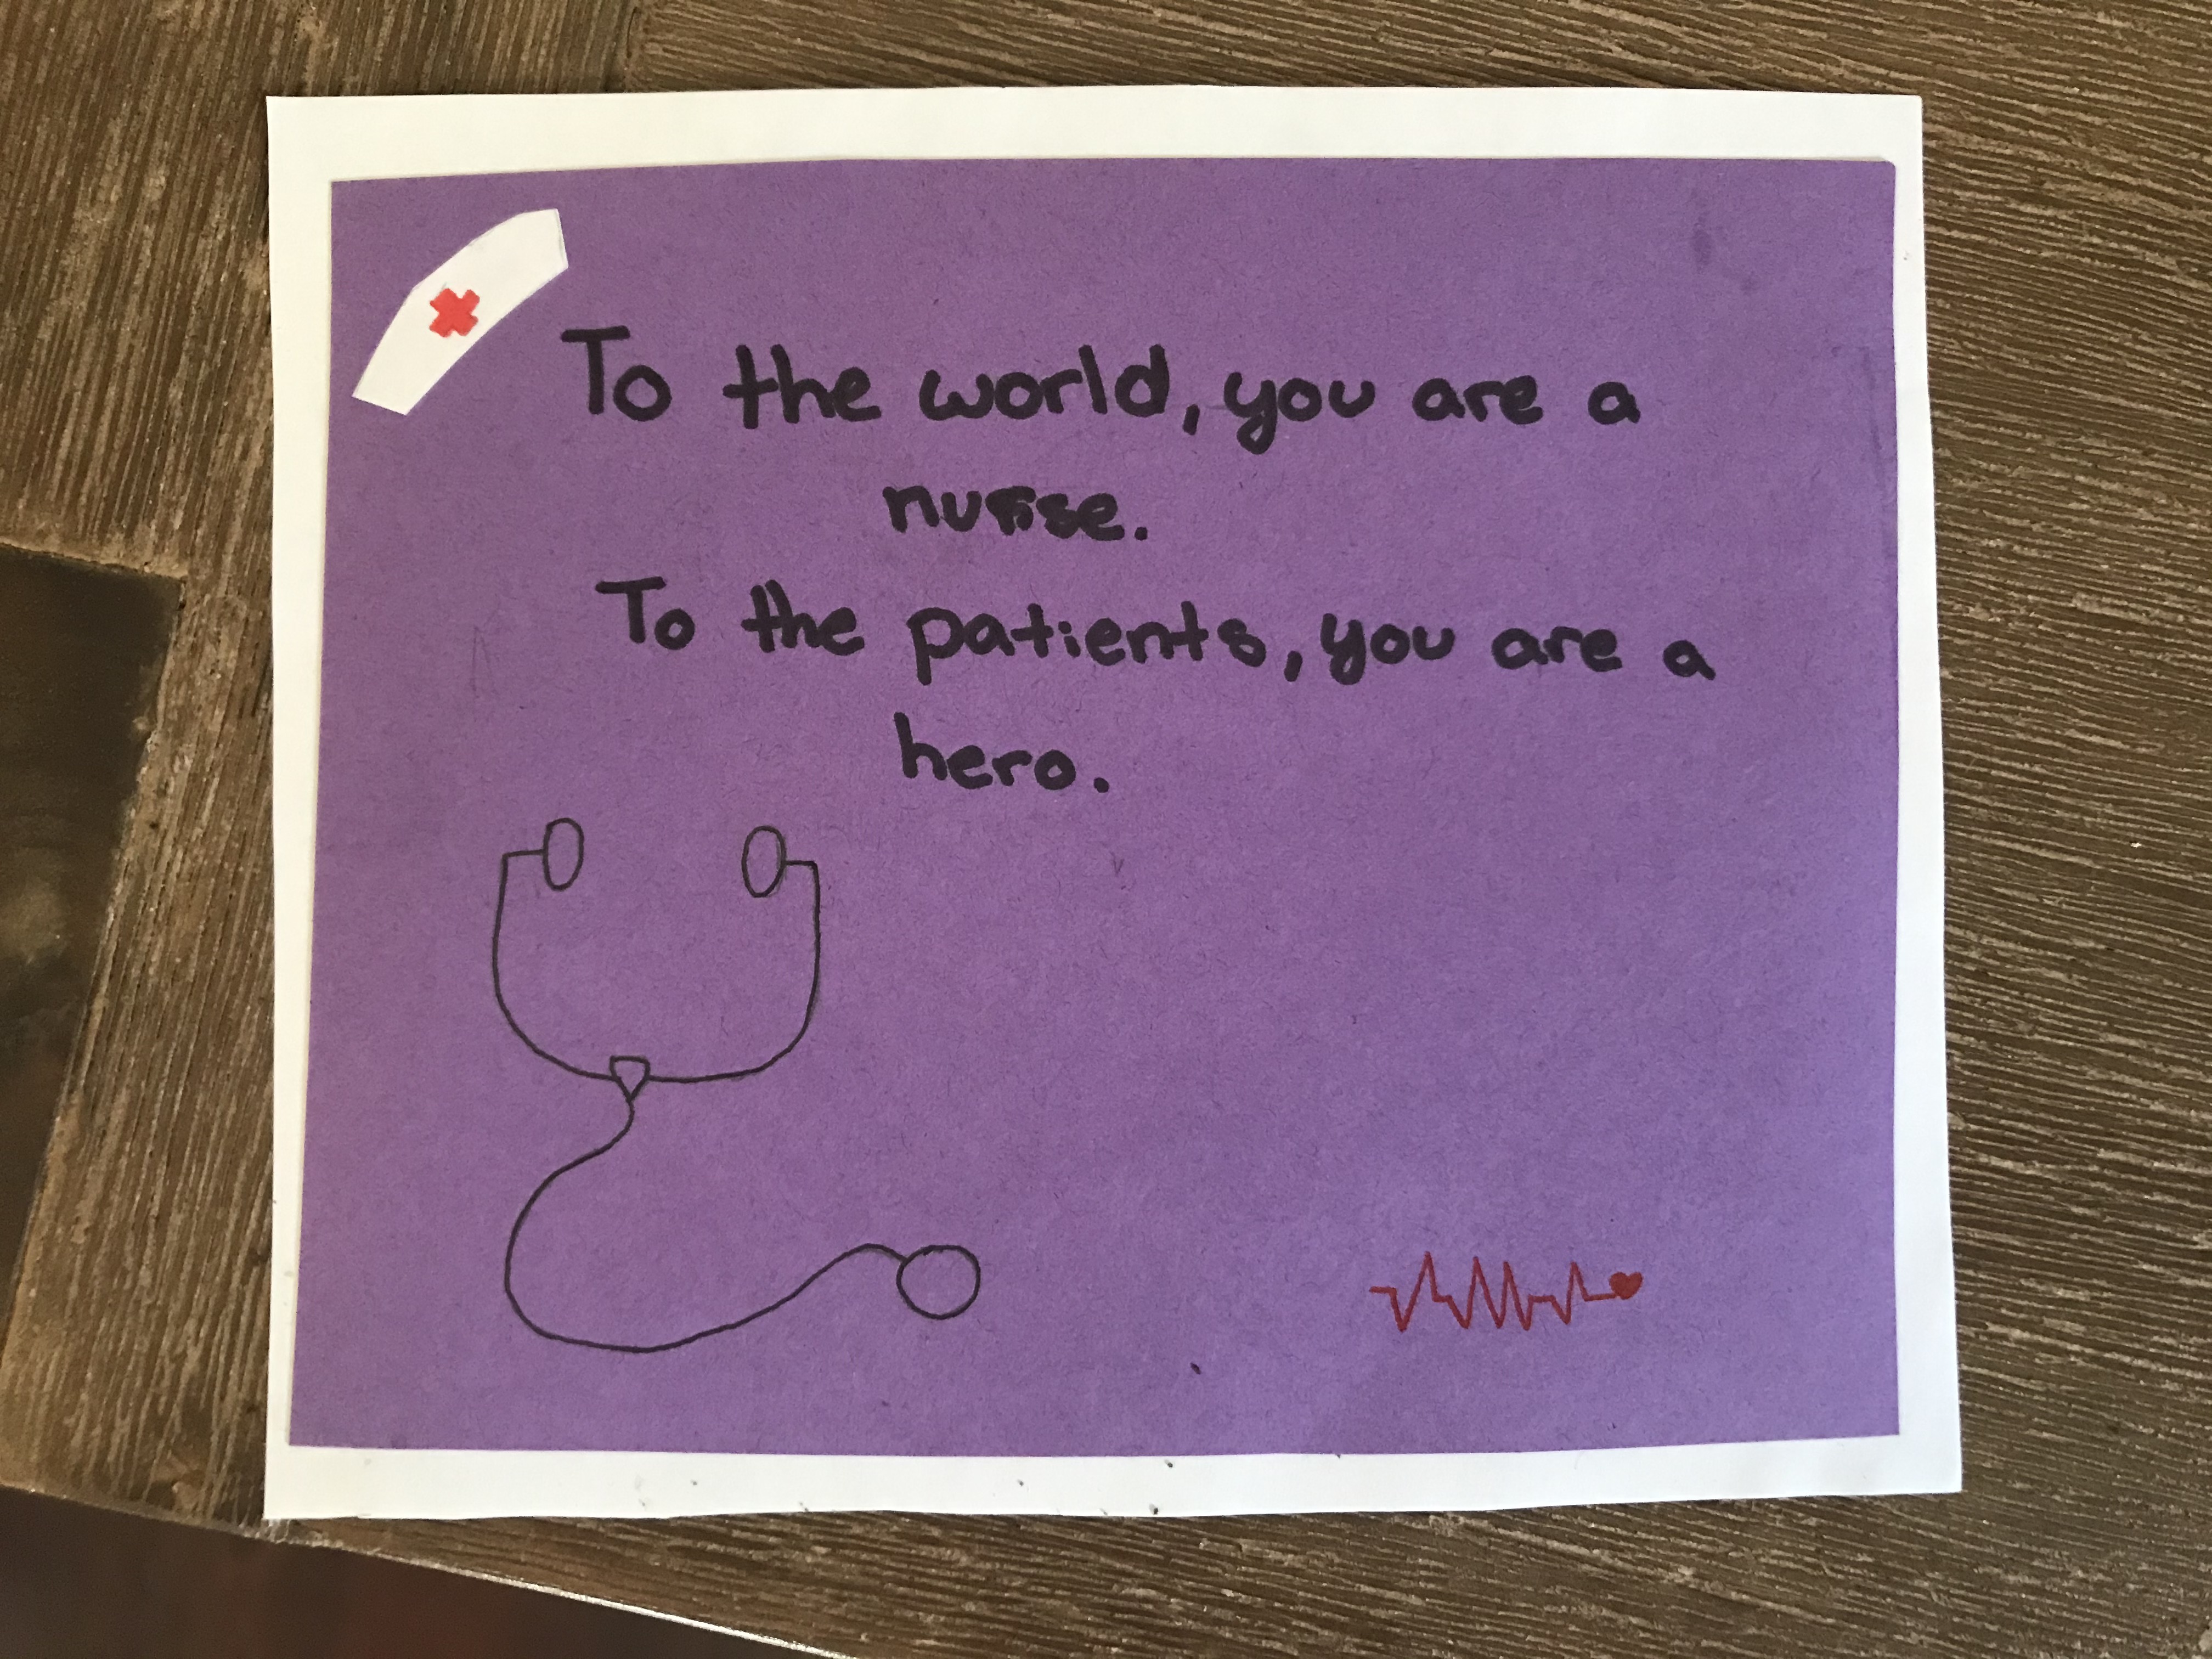 To the world, you are a
nurse.
To the patients, you are a
hero.